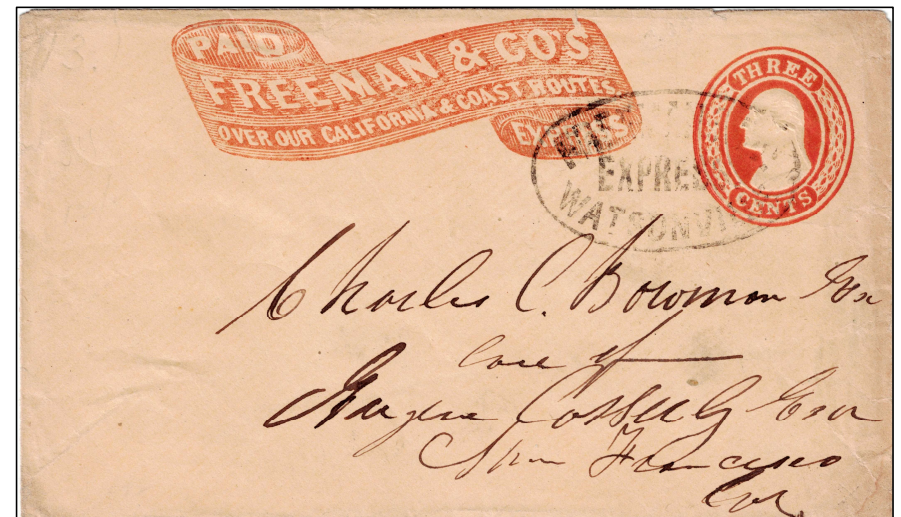 PAID
FREEMAN & CO'S
OVER OUR CALIFORNIA & COAST ROUTES.
EXPRESS
THREE
CENTS
EXPRESS
WATSONVI
Charles C. Bowman Esq
care of
Eugene Casserly Esqr
San Francisco
Cal.